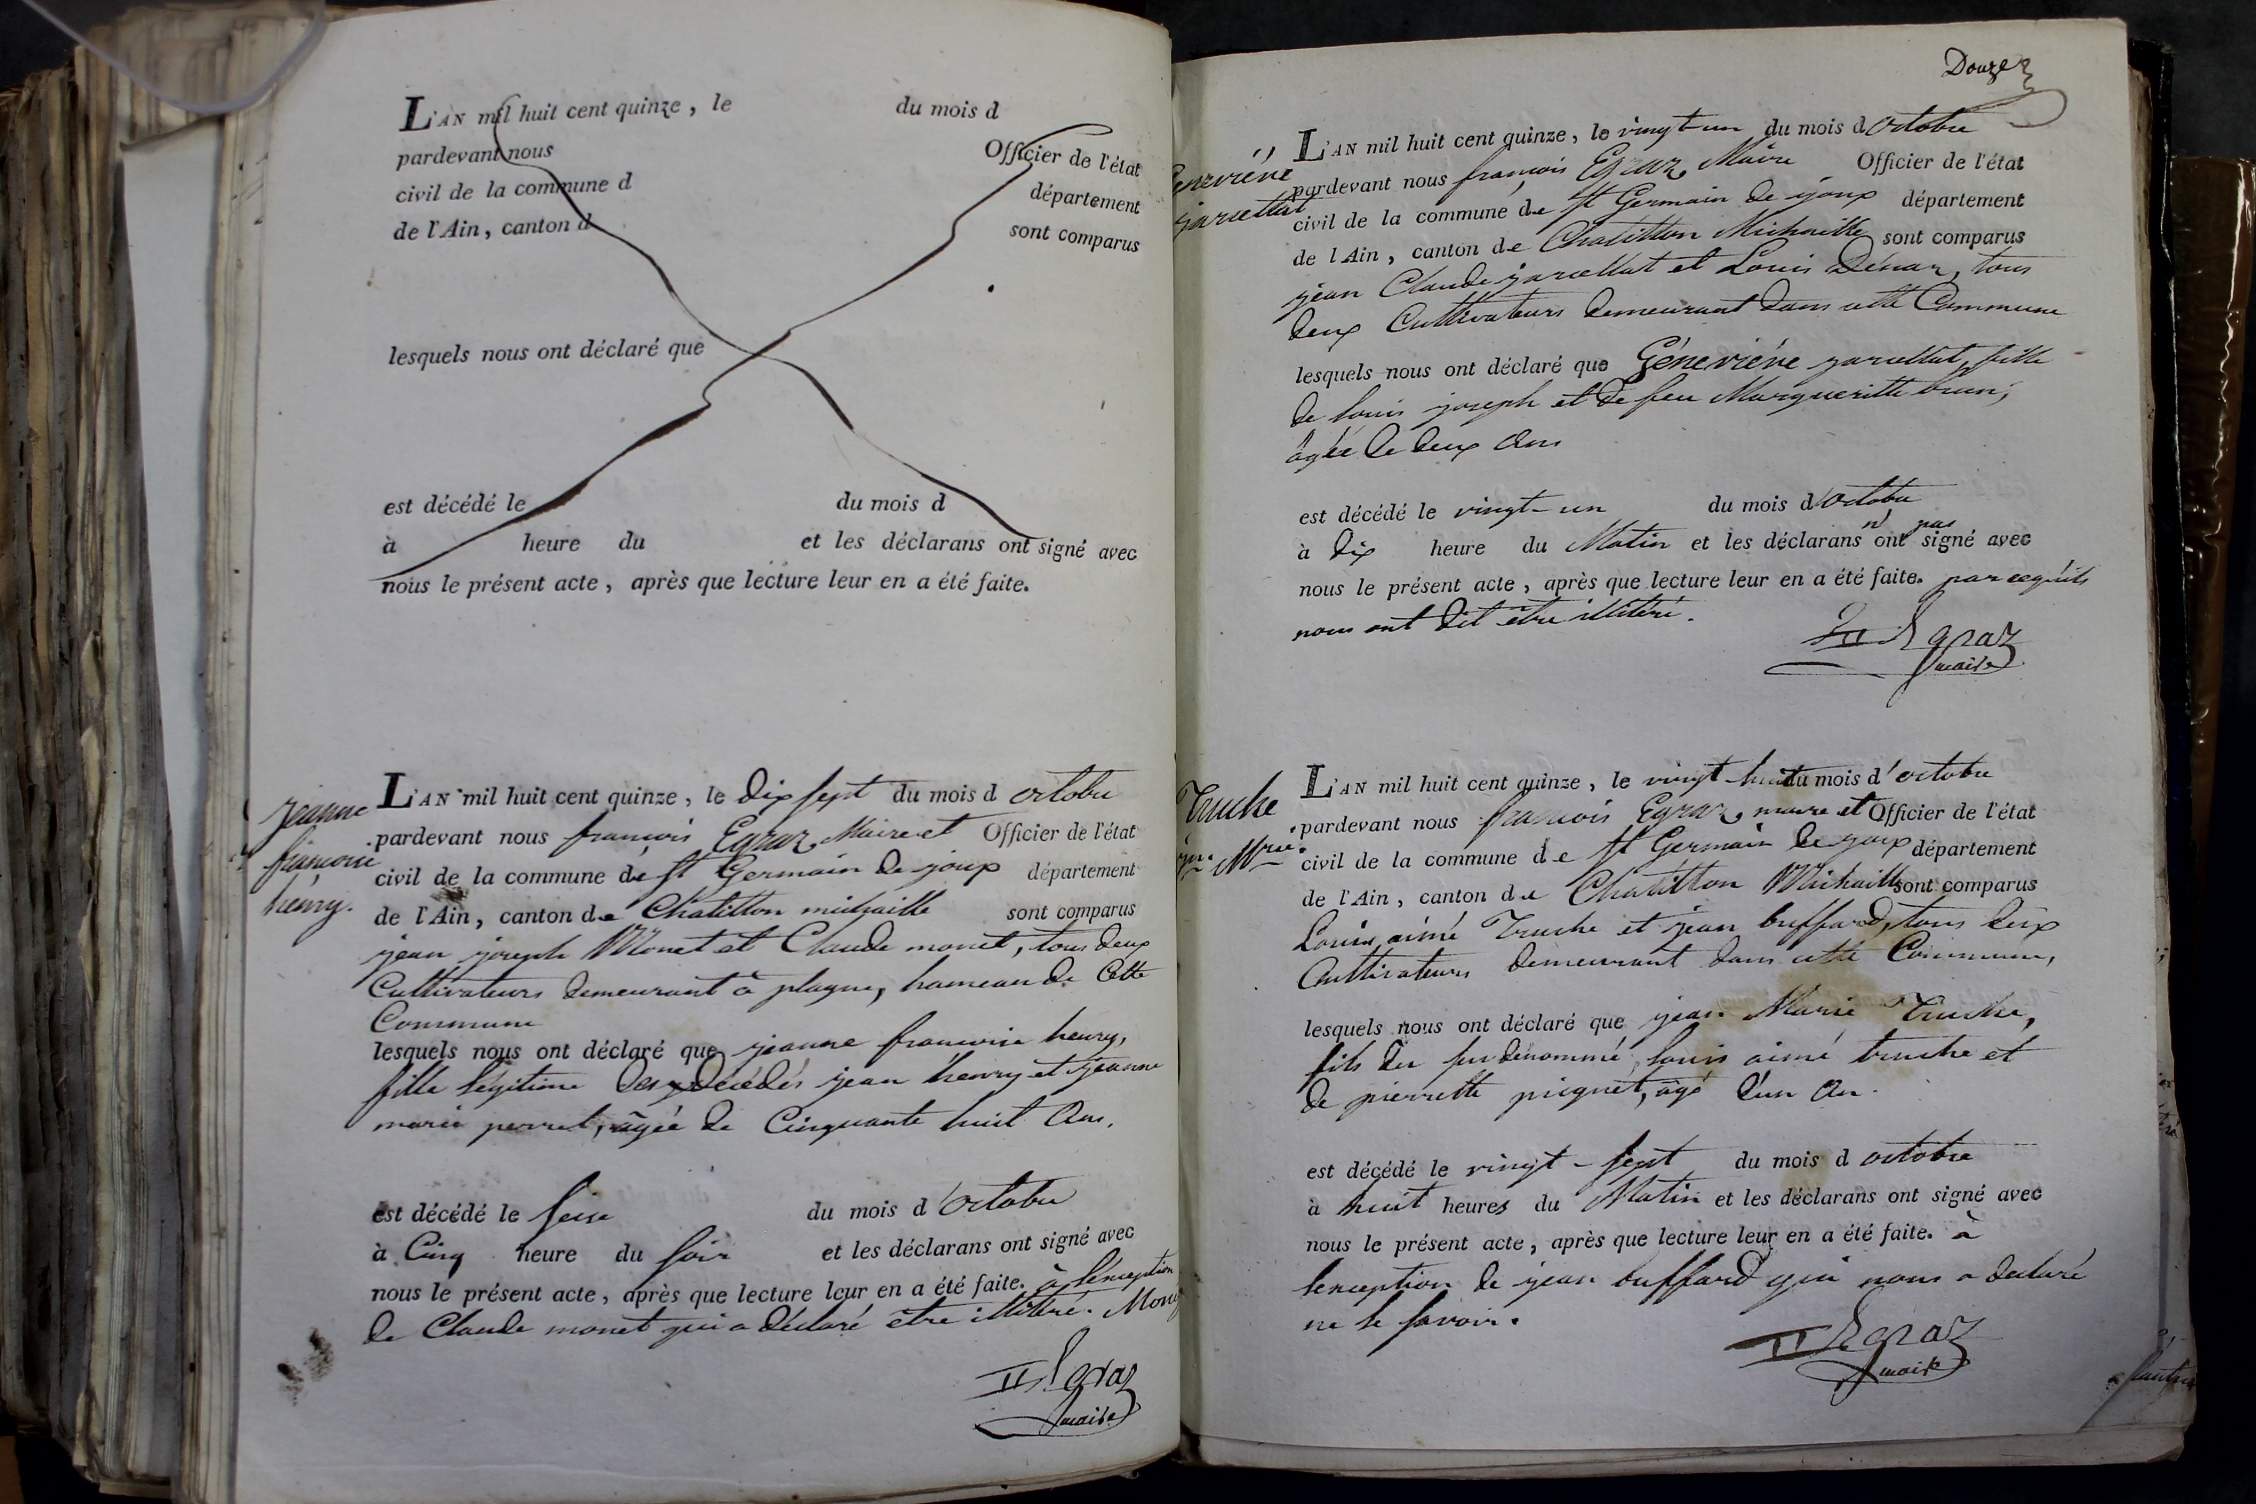 L'AN mil huit cent quinze, le du mois d
pardevant nous Officier de l'état
civil de la commune d département
de l'Ain, canton d sont comparus
lesquels nous ont déclaré que
est décédé le du mois d
à heure du et les déclarans ont signé avec
nous le présent acte, après que lecture leur en a été faite.
jeanne
francoise
hénry.
L'AN mil huit cent quinze, le dix sept du mois d octobre
pardevant nous francois Egraz, Maire et Officier de l'état
civil de la commune de st Germain de joux département
de l'Ain, canton de Chatillon michaille sont comparus
jean joseph Monet et Claude monet, tous deux
Cultivateurs demeurant à plagne, hameau de Cette
Commune
lesquels nous ont déclaré que jeanne francoise henry,
fille légitime des décédés jean hénry et jeanne
marie perret, âgée de Cinquante huit Ans.
est décédé le seise du mois d'octobre
à Cinq heure du soir et les déclarans ont signé avec
nous le présent acte, après que lecture leur en a été faite. à lexception
de Claude monet qui a déclaré être illitéré. Monet
Egraz
maire
Douze
Geneviéve
jarcellat
L'AN mil huit cent quinze, le vingt-un du mois d octobre
pardevant nous francois Egraz, Maire Officier de l'état
civil de la commune de st Germain de joux département
de l'Ain, canton de Chatillon Michaille sont comparus
jean Claude jarcellat et Louis Dénar, tous
deux Cultivateurs demeurant dans cette Commune
lesquels nous ont déclaré que Géneviéve jarcellat, fille
de louis joseph et de feu Margueritte brun,
âgée de deux Ans
est décédé le vingt-un du mois d'octobre
à dix heure du Matin et les déclarans n'ont pas signé avec
nous le présent acte, après que lecture leur en a été faite. parcequ'ils
nous ont dit être illitéré.
Egraz
maire
Truche
jn. Mrie.
L'AN mil huit cent quinze, le vingt huit du mois d'octobre
pardevant nous francois Egraz, maire et Officier de l'état
civil de la commune de st Germain de joux département
de l'Ain, canton de Chatillon Michaille sont comparus
Louis aimé Truche et jean buffard, tous deux
Cultivateurs demeurant dans cette Commune,
lesquels nous ont déclaré que jean Marie Truche,
fils du susdénommé louis aimé truche et
de pierrette pignet, âgé d'un An.
est décédé le vingt-sept du mois d octobre
à huit heures du Matin et les déclarans ont signé avec
nous le présent acte, après que lecture leur en a été faite. à
lexception de jean buffard qui nous a declaré
ne le savoir.
Egraz
maire